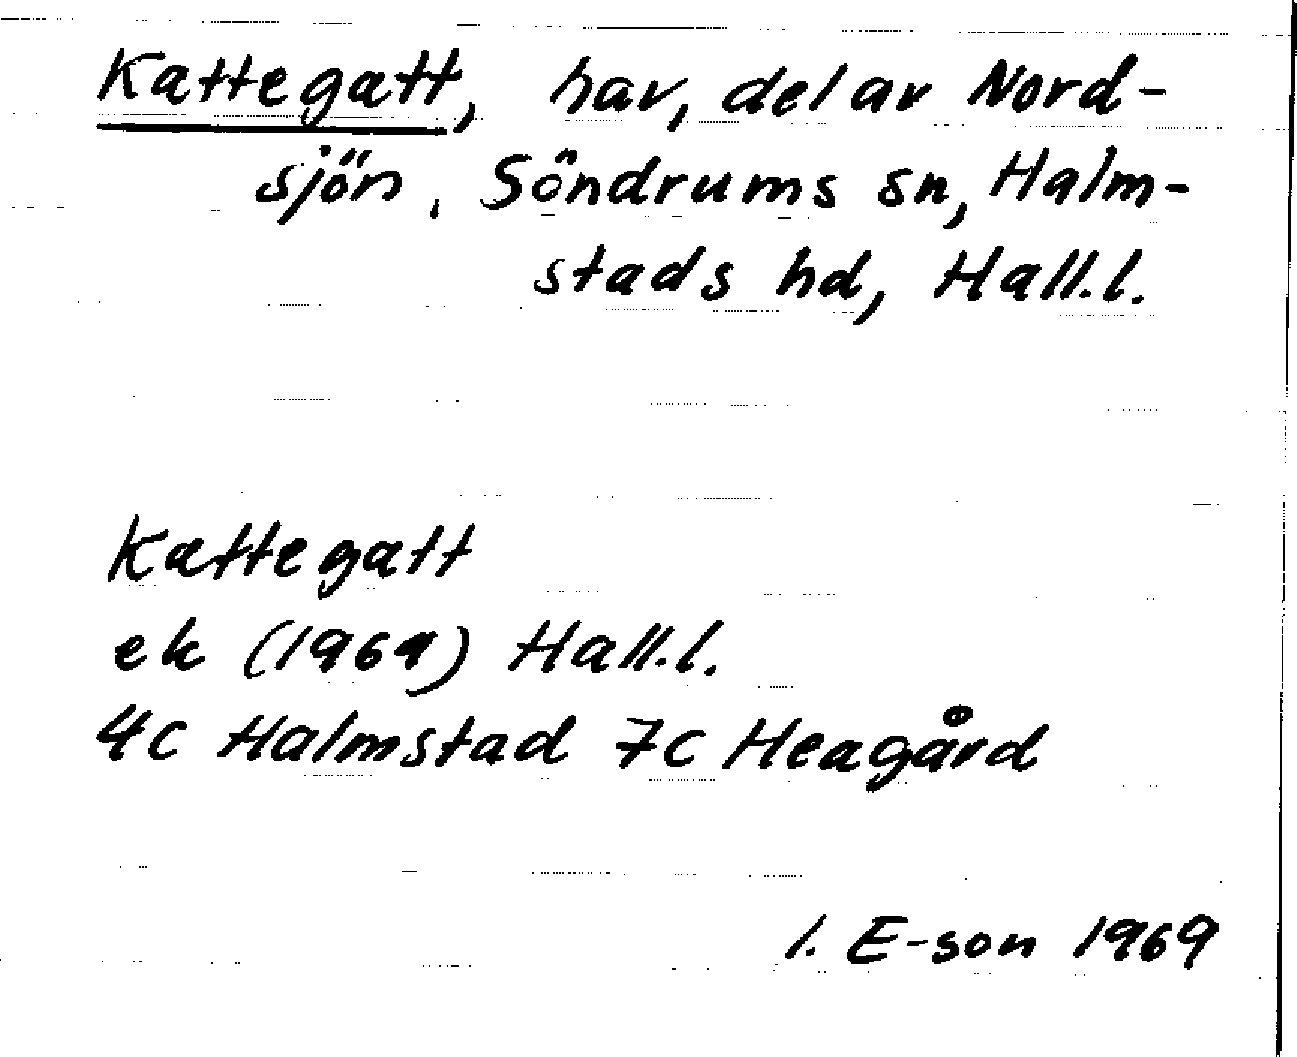 Kattegatt, hav, del av Nord-
sjön, Söndrums sn, Halm-
stads hd, Hall.l.
Kattegatt
ek (1969) Hall.l.
4C Halmstad 7c Heagård
I. E-son 1969